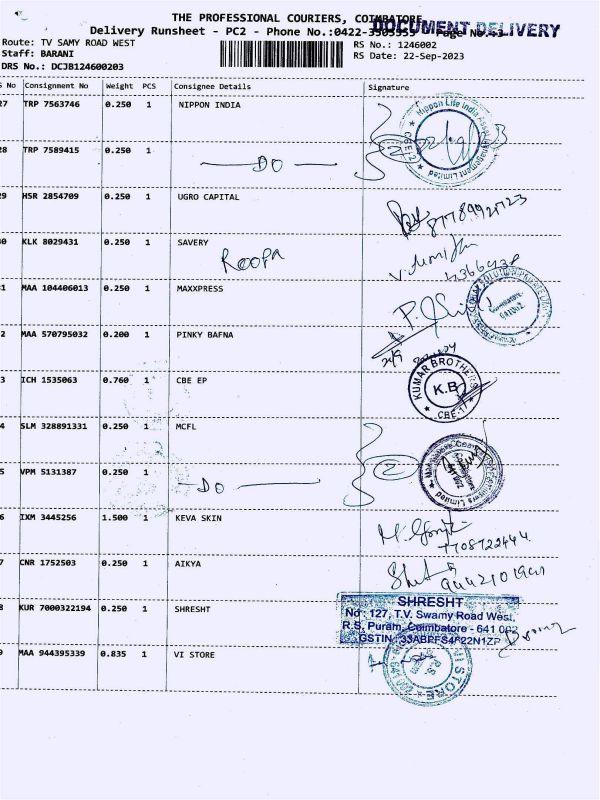 THE PROFESSIONAL COURIERS, COIMBATORE
DOCUMENT DELIVERY
Delivery Runsheet - PC2 - Phone No.:0422- Page No.
Route: TV SAMY ROAD WEST
RS No.: 1246002
Staff: BARANI
RS Date: 22-Sep-2023
DRS No.: DCJB124600203
S No Consignment No Weight PCS Consignee Details Signature
27 TRP 7563746 0.250 1 NIPPON INDIA
Nippon Life India Asset Management Limited
CBE-12
28 TRP 7589415 0.250 1 DO
2
29 HSR 2854709 0.250 1 UGRO CAPITAL
0 KLK 8029431 0.250 1 SAVERY
Roopa
1 MAA 104406013 0.250 1 MAXXPRESS
Coimbatore-
641002
2 MAA 570795032 0.200 1 PINKY BAFNA
3 ICH 1535063 0.760 1 CBE EP
KUMAR BROTHERS
K.B
CBE-17
4 SLM 328891331 0.250 1 MCFL
5 VPM 5131387 0.250 1 DO
2
Coimbatore
641 002
Limited
6 IXM 3445256 1.500 1 KEVA SKIN
7708722444
7 CNR 1752503 0.250 1 AIKYA
8 KUR 7000322194 0.250 1 SHRESHT
SHRESHT
No : 127, T.V. Swamy Road West,
R.S. Puram, Coimbatore - 641 002
GSTIN :
9 MAA 944395339 0.835 1 VI STORE
VI STORE